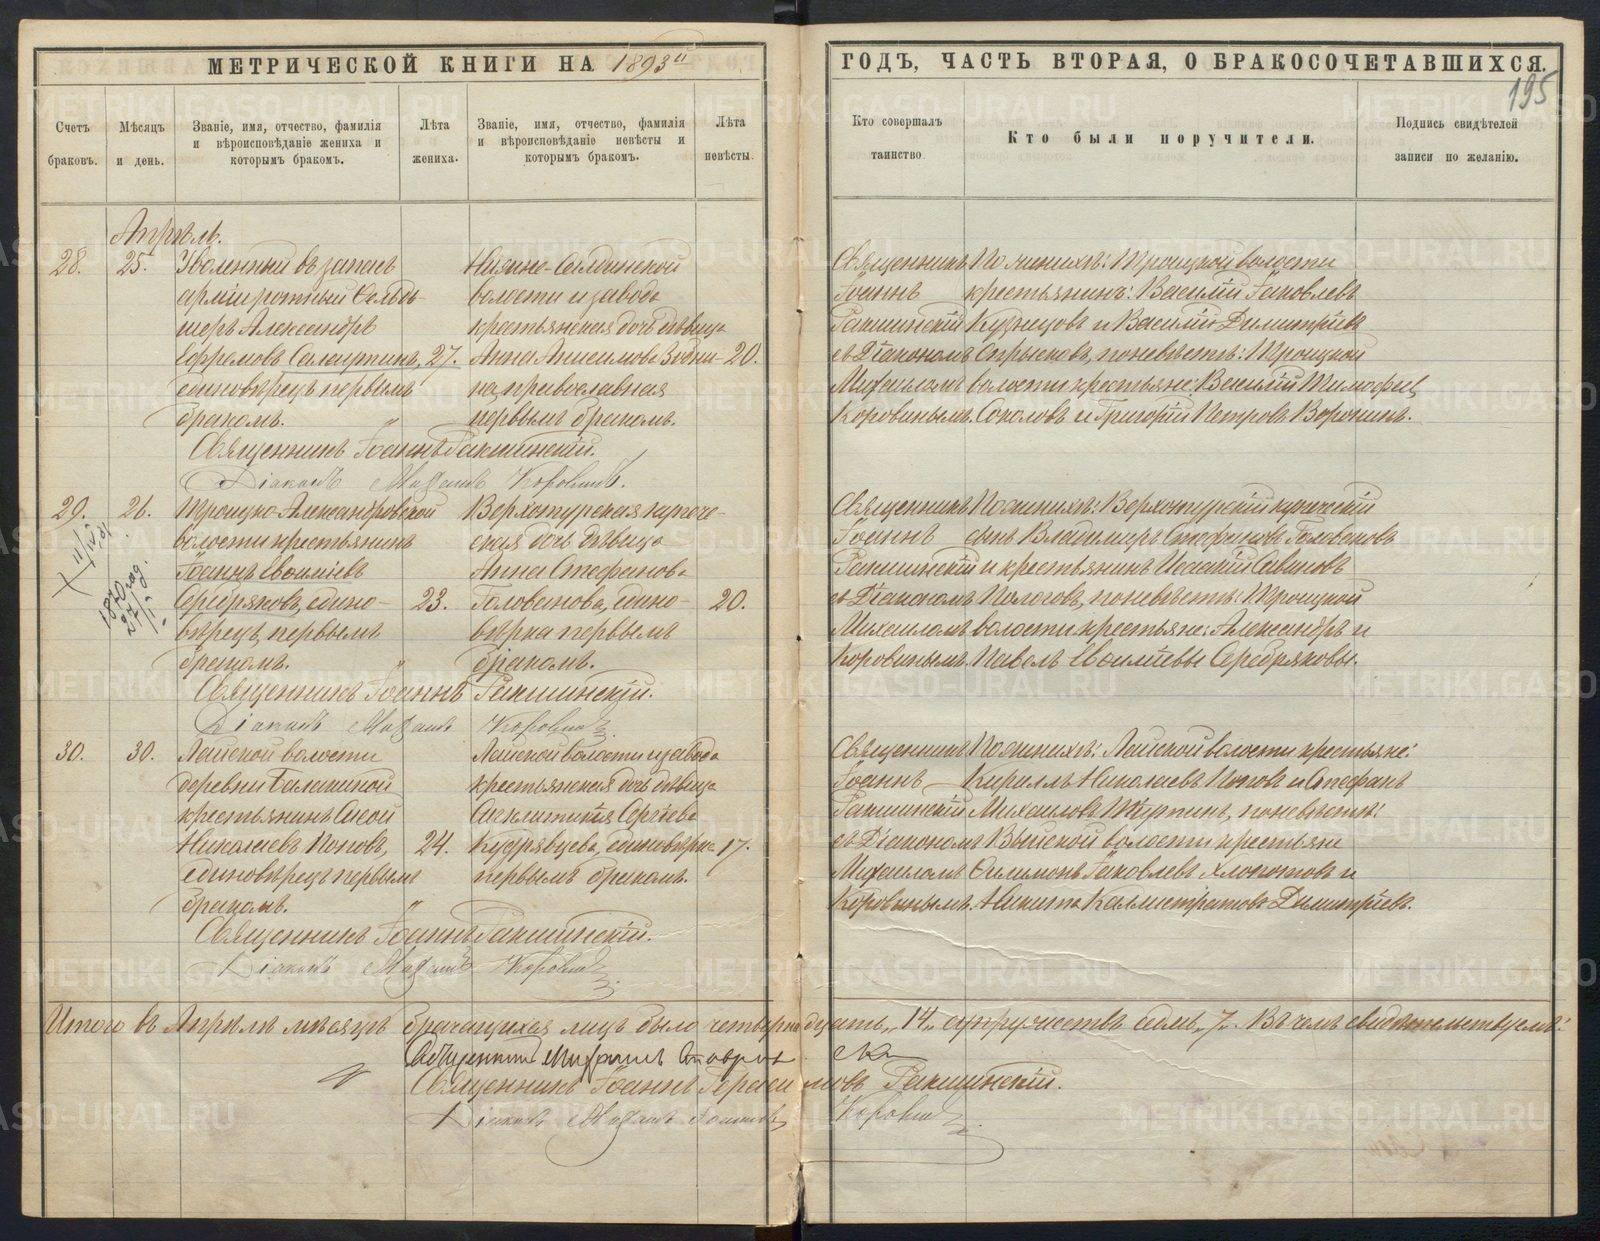 МЕТРИЧЕСКОЙ КНИГИ НА 1893й
ГОДЪ, ЧАСТЬ ВТОРАЯ, О БРАКОСОЧЕТАВШИХСЯ.
195
Счетъ браковъ.
Мѣсяцъ и день.
Званіе, имя, отчество, фамилія
и вѣроисповѣданіе жениха и
которымъ бракомъ.
Лѣта жениха.
Званіе, имя, отчество, фамилія
и вѣроисповѣданіе невѣсты и
которымъ бракомъ.
Лѣта невѣсты.
Кто совершалъ
таинство
Кто были поручители.
Подпись свидѣтелей
записи по желанію.
Апрѣль.
28. 25.
Уволенный въ запасъ
арміи ротный Фельд-
шеръ Александръ
Ефремовъ 27.
единовѣрецъ первымъ
бракомъ.
Нижне-Салдинской
волости и завода
крестьянская дочь дѣвица
Анна Анисимова 20.
на, православная
первымъ бракомъ.
Священникъ
Іоаннъ
Гакшинскій
съ Діакономъ
Михаиломъ
Коровинымъ.
По женихѣ: Троицкой волости
крестьянинъ: Василій Яковлевъ
Кузнецовъ и Василій Димитріевъ
по невѣстѣ: Троицкой
волости крестьяне: Василій Тимофеевъ
Соколовъ и Григорій Петровъ Воронинъ.
Священникъ Іоаннъ Гакшинскій.
Діаконъ Михаилъ Коровинъ.
29. 26.
Троицко-Александровской
волости крестьянинъ
Іоаннъ
Серебряковъ, едино- 23.
вѣрецъ, первымъ
бракомъ.
Верхотурская купече-
ская дочь дѣвица
Анна Стефанова
Голованова, едино- 20.
вѣрка первымъ
бракомъ.
11/IV 91
1870 год.
27/I
Священникъ
Іоаннъ
Гакшинскій
съ Діакономъ
Михаиломъ
Коровинымъ.
По женихѣ: Верхотурскій купеческій
сынъ Владимиръ Стефановъ Головановъ
и крестьянинъ Исаакій Савиновъ
Пологовъ, по невѣстѣ: Троицкой
волости крестьяне: Александръ и
Павелъ Серебряковы.
Священникъ Іоаннъ Гакшинскій.
Діаконъ Михаилъ Коровинъ.
30. 30.
Лайской волости
деревни Балакиной
крестьянинъ
Николаевъ Поповъ, 24.
единовѣрецъ первымъ
бракомъ.
Лайской волости и завода
крестьянская дочь дѣвица
Сергіева
Кудрявцева, единовѣрка 17.
первымъ бракомъ.
Священникъ
Іоаннъ
Гакшинскій
съ Діакономъ
Михаиломъ
Коровинымъ.
По женихѣ: Лайской волости крестьяне:
Кириллъ Николаевъ Поповъ и Стефанъ
Михаиловъ по невѣстѣ:
Выйской волости крестьяне
Филимонъ Яковлевъ Хлопотовъ и
Никита Каллистратовъ Димитріевъ.
Священникъ Іоаннъ Гакшинскій.
Діаконъ Михаилъ Коровинъ
Итого въ Апрѣлѣ мѣсяцѣ брачащихся лицъ было четырнадцать „14„ супружествъ семь „7„. Въ чемъ свидѣтельствуемъ:
Священникъ Михаилъ
Священникъ Іоаннъ Герасимовъ Гакшинскій.
Діаконъ Михаилъ Коровинъ
METRIKI.GASO-URAL.RU